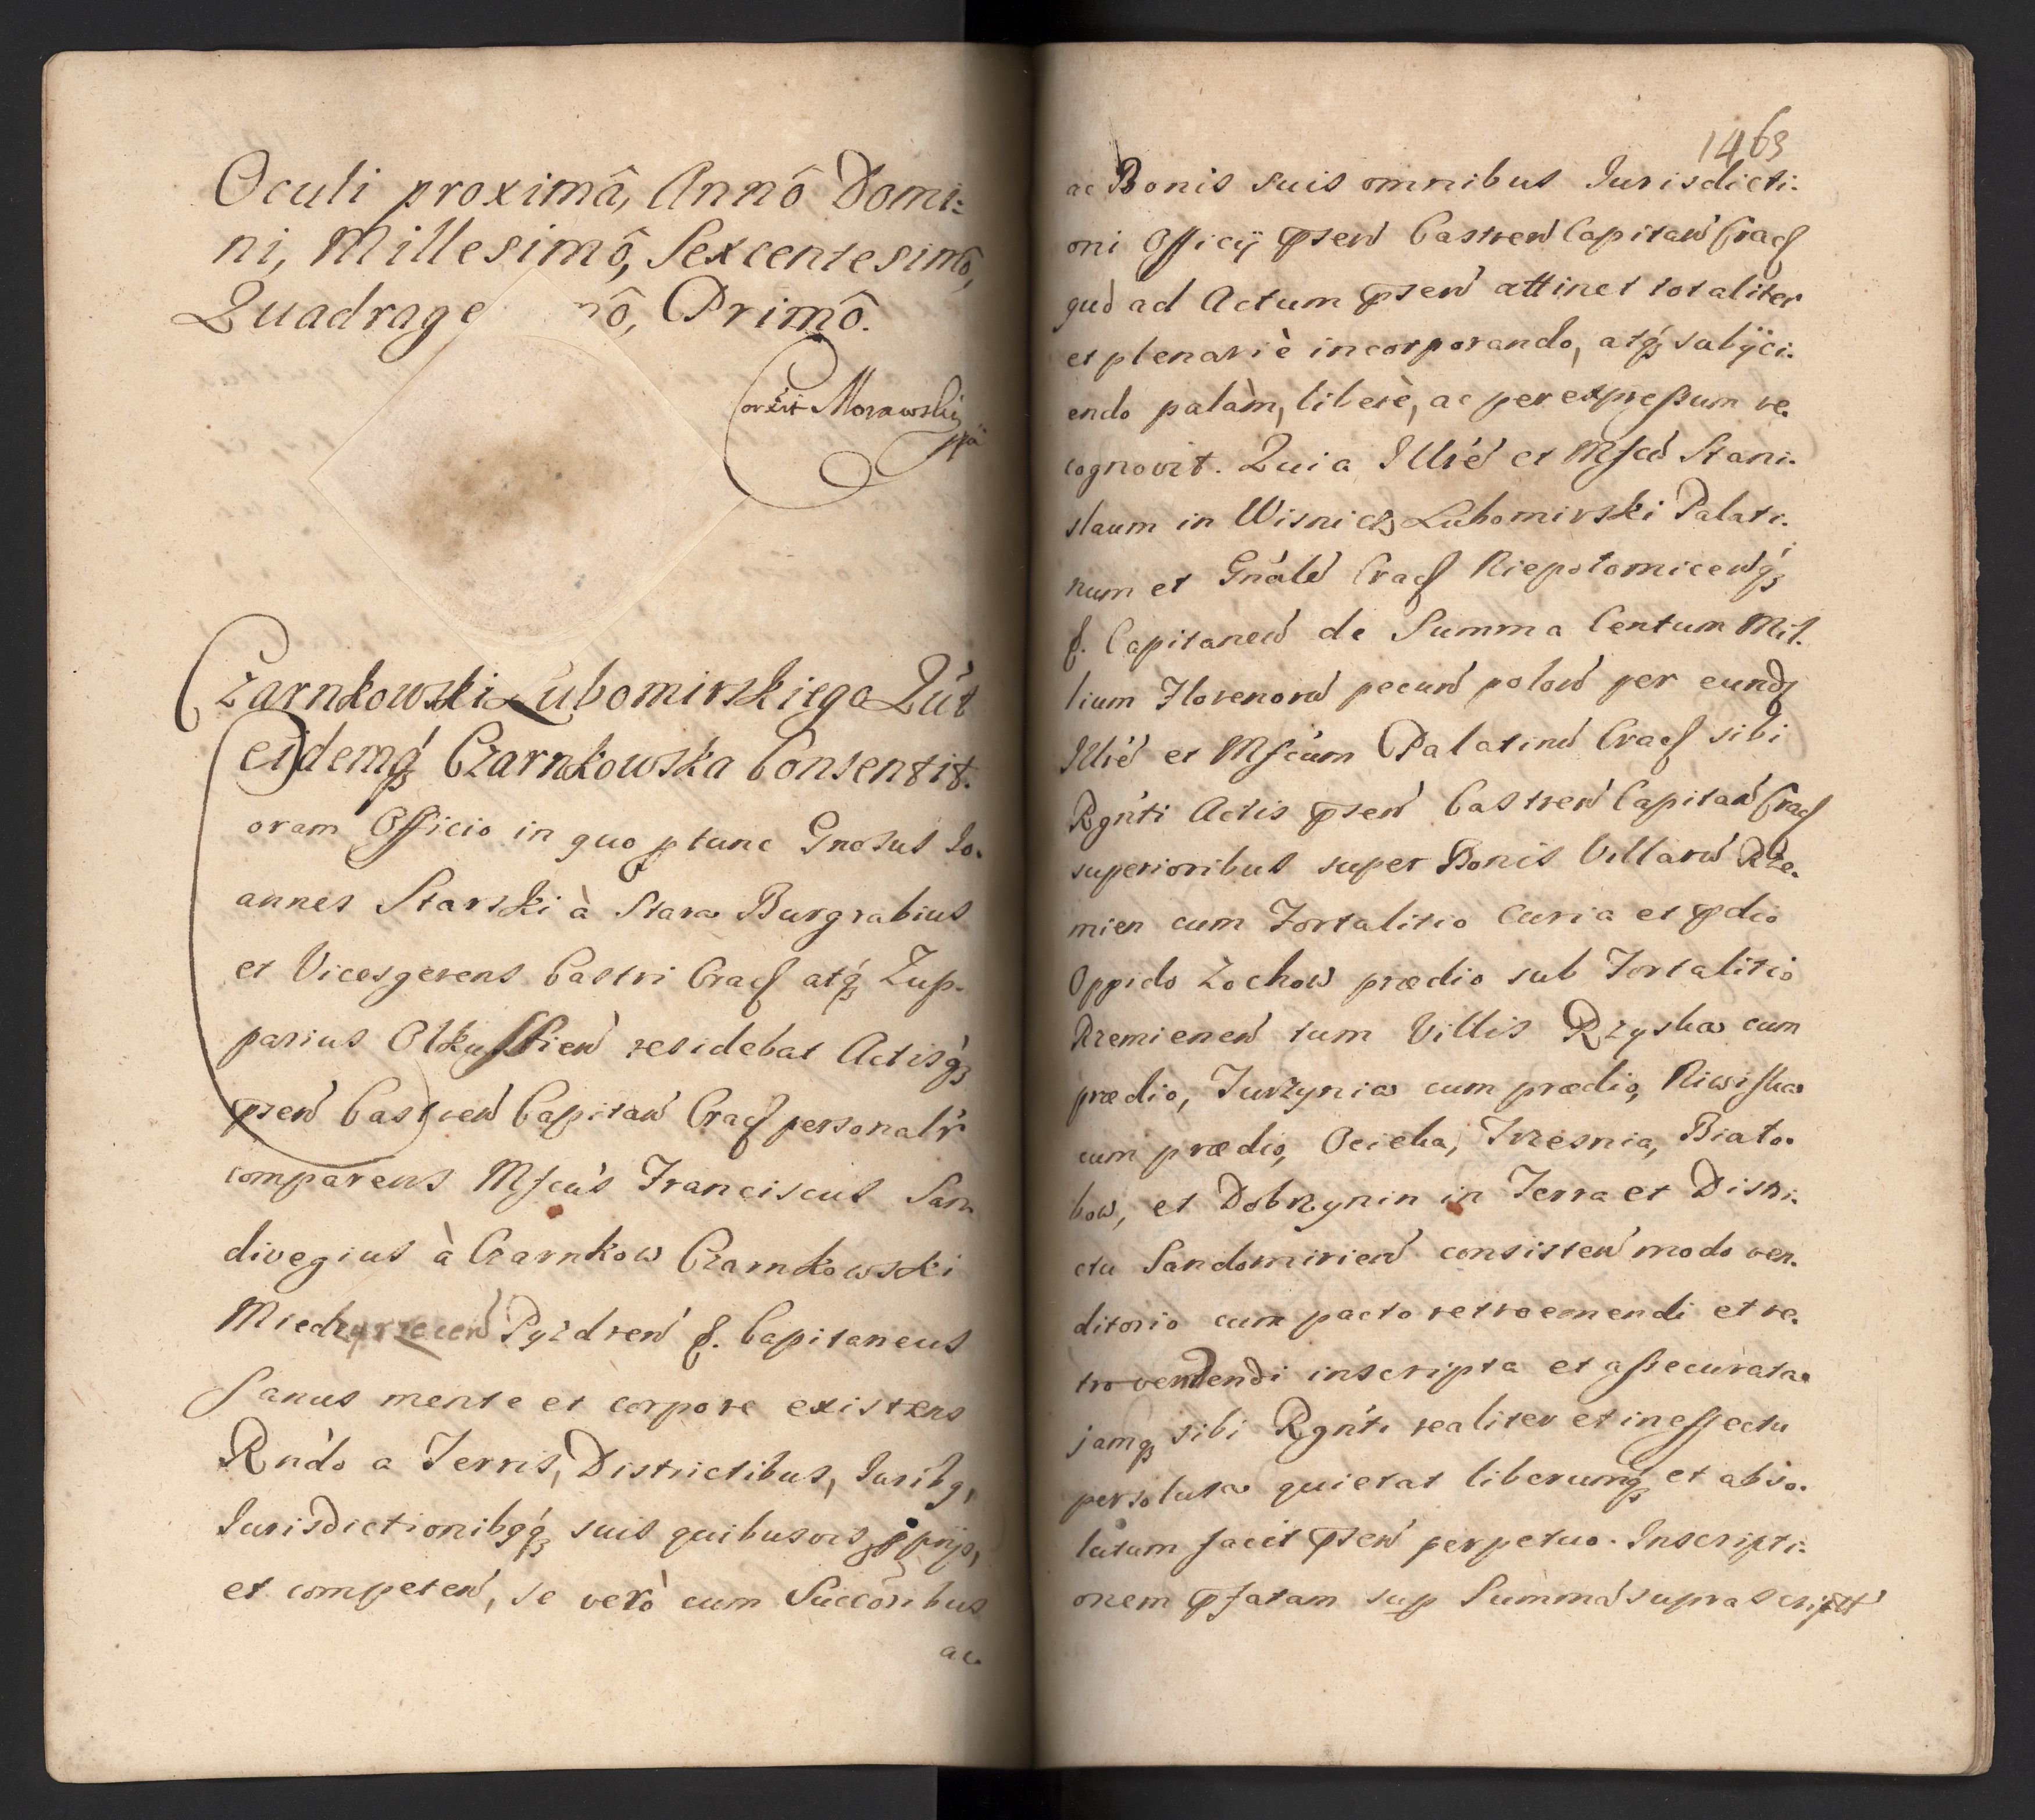 Oculi proximâ, Annô Domi:
ni, Millesimô, Sexcentesimô,
Quadrage nô, Primô.
Corêxit Morawski
mpa
Czarnkowski Lubomirskiego Qut
eidemq́ Czarnkowska Consentit.
oram Officio in quo p tunc Gnosus Jo.
annes Starski à Stara Burgrabius
et Vicesgerens Castri Crac atq́ Zup.
parius Olkussien residebat Actisq́
psen Castren Capitan Crac personalr
comparens Mfcus Franciscus San
divegius à Czarnkow Czarnkowski
Miedzyrzecen Pyzdren &. Capitaneus
Sanus mente et corpore existens
Rndo a Terris, Districtibus, Juribq,
Jurisdictionibq́ suis quibusvis, ppriis,
et competen, se verò cum Succoribus
ac.
1463
ac Bonis suis omnibus Jurisdicti:
oni Officij psen Castren Capitan Crac
quò ad Actum psen attinet totaliter
et plenariè incorporando, atq́ subijci.
endo palàm, liberè, ac per expreßum re.
cognovit. Quia Illrê et Mfcu Stani.
slaum in Wisnicz Lubomirski Palati.
num et Gnále Crac Niepolomicenq́
&. Capitaneu de Summa Centum Mil.
lium Florenoru pecun polon per eund
Illrê et Mfcum Palatinu Crac sibi
Rgnti Actis psen Castren Capitan Crac
superioribus super Bonis Villaru Rze.
mien cum Fortalitio Curia et pdio
Oppido Zochow prædio sub Fortalitio
Rzemienen tum Villis Rzyska cum
prædio, Turzynia cum prædio, Niwiska
cum prædio, Ocieka, Trzesnia, Biało.
bow, et Dobrzynin in Terra et Distri.
ctu Sandomirien consisten modo ven.
ditorio cum pacto retroemendi et re.
tro vendendi inscripta et aßecurata
jamq́ sibi Rgnti realiter et in effectu
persoluta quietat liberumq́ et abso.
lutum facit psen perpetuo. Inscripti:
onem pfatam sup Summa suprascript